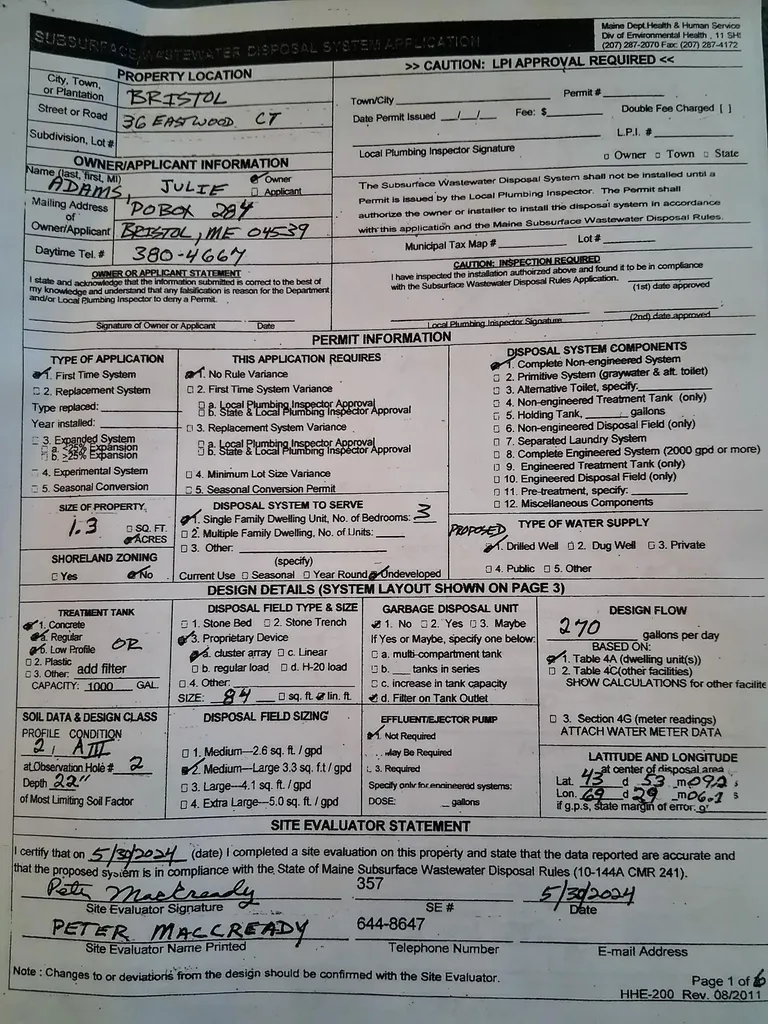 SUBSURFACE WASTEWATER DISPOSAL SYSTEM APPLICATION
Maine Dept.Health & Human Service
Div of Environmental Health , 11 SH
(207) 287-2070 Fax: (207) 287-4172
PROPERTY LOCATION
>> CAUTION: LPI APPROVAL REQUIRED <<
City, Town, or Plantation BRISTOL
Street or Road 36 EASTWOOD CT
Subdivision, Lot #
Town/City Permit #
Date Permit Issued __/__/__ Fee: $ Double Fee Charged [ ]
L.P.I. #
Local Plumbing Inspector Signature □ Owner □ Town □ State
OWNER/APPLICANT INFORMATION
Name (last, first, MI) ADAMS, JULIE ☑ Owner □ Applicant
Mailing Address of Owner/Applicant PO BOX 284
BRISTOL, ME 04539
Daytime Tel. # 380-4667
The Subsurface Wastewater Disposal System shall not be installed until a
Permit is issued by the Local Plumbing Inspector. The Permit shall
authorize the owner or installer to install the disposal system in accordance
with this application and the Maine Subsurface Wastewater Disposal Rules.
Municipal Tax Map # Lot #
OWNER OR APPLICANT STATEMENT
I state and acknowledge that the information submitted is correct to the best of
my knowledge and understand that any falsification is reason for the Department
and/or Local Plumbing Inspector to deny a Permit.
Signature of Owner or Applicant Date
CAUTION: INSPECTION REQUIRED
I have inspected the installation authoirzed above and found it to be in compliance
with the Subsurface Wastewater Disposal Rules Application.
(1st) date approved
Local Plumbing Inspector Signature (2nd) date approved
PERMIT INFORMATION
TYPE OF APPLICATION
☑ 1. First Time System
□ 2. Replacement System
Type replaced:
Year installed:
□ 3. Expanded System
□ a. <25% Expansion
□ b. >25% Expansion
□ 4. Experimental System
□ 5. Seasonal Conversion
THIS APPLICATION REQUIRES
☑ 1. No Rule Variance
□ 2. First Time System Variance
□ a. Local Plumbing Inspector Approval
□ b. State & Local Plumbing Inspector Approval
□ 3. Replacement System Variance
□ a. Local Plumbing Inspector Approval
□ b. State & Local Plumbing Inspector Approval
□ 4. Minimum Lot Size Variance
□ 5. Seasonal Conversion Permit
DISPOSAL SYSTEM COMPONENTS
☑ 1. Complete Non-engineered System
□ 2. Primitive System (graywater & alt. toilet)
□ 3. Alternative Toilet, specify:
□ 4. Non-engineered Treatment Tank (only)
□ 5. Holding Tank, ______ gallons
□ 6. Non-engineered Disposal Field (only)
□ 7. Separated Laundry System
□ 8. Complete Engineered System (2000 gpd or more)
□ 9. Engineered Treatment Tank (only)
□ 10. Engineered Disposal Field (only)
□ 11. Pre-treatment, specify:
□ 12. Miscellaneous Components
SIZE OF PROPERTY
1.3 □ SQ. FT. ☑ ACRES
SHORELAND ZONING
□ Yes ☑ No
DISPOSAL SYSTEM TO SERVE
☑ 1. Single Family Dwelling Unit, No. of Bedrooms: 3
□ 2. Multiple Family Dwelling, No. of Units:
□ 3. Other:
(specify)
Current Use □ Seasonal □ Year Round ☑ Undeveloped
PROPOSED TYPE OF WATER SUPPLY
☑ 1. Drilled Well □ 2. Dug Well □ 3. Private
□ 4. Public □ 5. Other
DESIGN DETAILS (SYSTEM LAYOUT SHOWN ON PAGE 3)
TREATMENT TANK
☑ 1. Concrete
☑ a. Regular
OR
☑ b. Low Profile
□ 2. Plastic
□ 3. Other: add filter
CAPACITY: 1000 GAL.
DISPOSAL FIELD TYPE & SIZE
□ 1. Stone Bed □ 2. Stone Trench
☑ 3. Proprietary Device
☑ a. cluster array □ c. Linear
□ b. regular load □ d. H-20 load
□ 4. Other:
SIZE: 84 □ sq. ft. ☑ lin. ft.
GARBAGE DISPOSAL UNIT
☑ 1. No □ 2. Yes □ 3. Maybe
If Yes or Maybe, specify one below:
□ a. multi-compartment tank
□ b. ____ tanks in series
□ c. increase in tank capacity
☑ d. Filter on Tank Outlet
DESIGN FLOW
270 gallons per day
BASED ON:
☑ 1. Table 4A (dwelling unit(s))
□ 2. Table 4C(other facilities)
SHOW CALCULATIONS for other facilite
□ 3. Section 4G (meter readings)
ATTACH WATER METER DATA
SOIL DATA & DESIGN CLASS
PROFILE CONDITION
2 / AIII
at Observation Hole # 2
Depth 22"
of Most Limiting Soil Factor
DISPOSAL FIELD SIZING
□ 1. Medium---2.6 sq. ft. / gpd
☑ 2. Medium---Large 3.3 sq. f.t / gpd
□ 3. Large---4.1 sq. ft. / gpd
□ 4. Extra Large---5.0 sq. ft. / gpd
EFFLUENT/EJECTOR PUMP
☑ 1. Not Required
□ 2. May Be Required
□ 3. Required
Specify only for engineered systems:
DOSE: ______ gallons
LATITUDE AND LONGITUDE
at center of disposal area
Lat. 43 d 53 m 09.2 s
Lon. 69 d 29 m 06.1 s
if g.p.s, state margin of error:
SITE EVALUATOR STATEMENT
I certify that on 5/30/2024 (date) I completed a site evaluation on this property and state that the data reported are accurate and
that the proposed system is in compliance with the State of Maine Subsurface Wastewater Disposal Rules (10-144A CMR 241).
Peter MacCready 357 5/30/2024
Site Evaluator Signature SE # Date
PETER MACCREADY 644-8647
Site Evaluator Name Printed Telephone Number E-mail Address
Note : Changes to or deviations from the design should be confirmed with the Site Evaluator.
Page 1 of 6
HHE-200 Rev. 08/2011